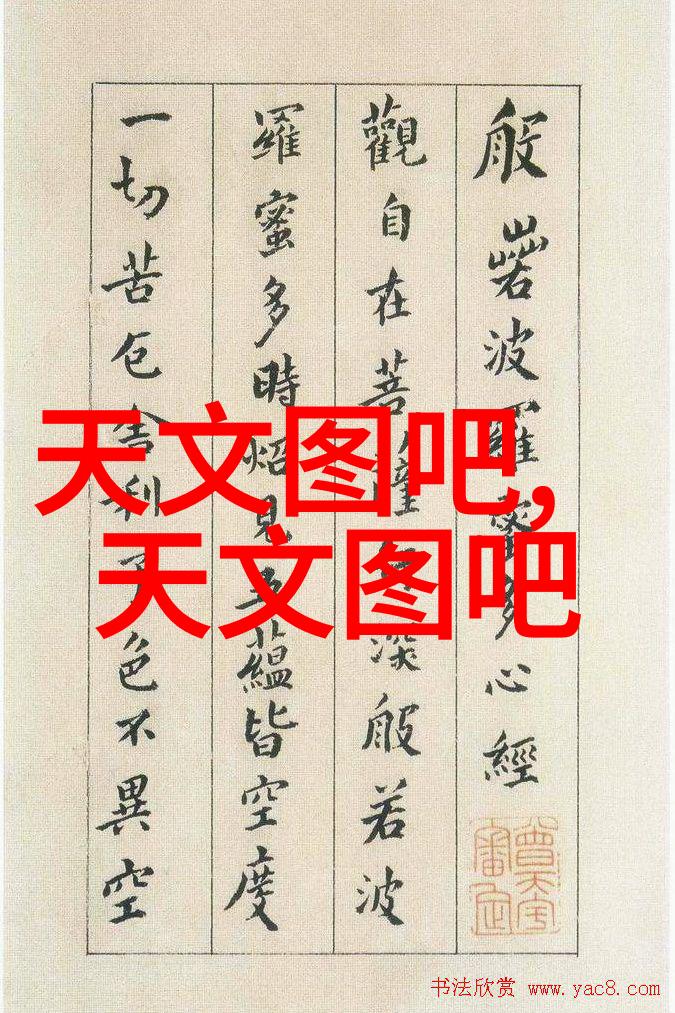 般若波羅蜜多心經
觀自在菩薩行深般若波
羅蜜多時炤見五蘊皆空度
一切苦厄舍利子色不異空
天文图吧,
天文图吧
书法欣赏 www.yac8.com